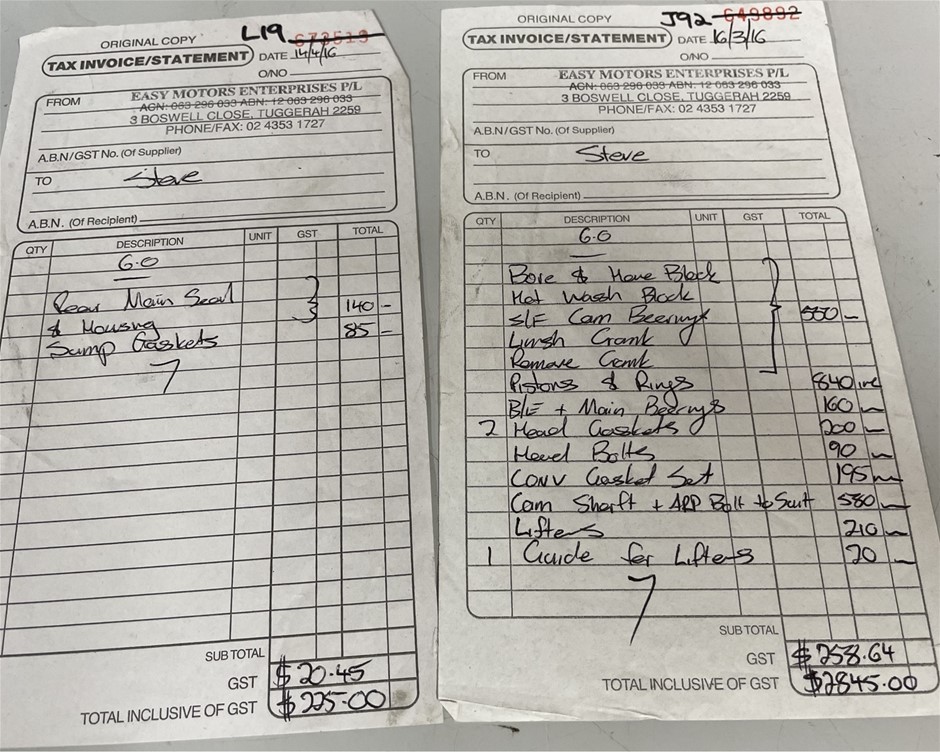 ORIGINAL COPY L19 673519
TAX INVOICE/STATEMENT DATE 14/4/16
O/NO
FROM EASY MOTORS ENTERPRISES P/L
ACN: 063 296 033 ABN: 12 063 296 033
3 BOSWELL CLOSE, TUGGERAH 2259
PHONE/FAX: 02 4353 1727
A.B.N/GST No. (Of Supplier)
TO Steve
A.B.N. (Of Recipient)
QTY DESCRIPTION UNIT GST TOTAL
6.0
Rear Main Seal
& Housing 140 -
Sump Gaskets 85 -
SUB TOTAL
GST $20.45
TOTAL INCLUSIVE OF GST $225.00
ORIGINAL COPY J92 649892
TAX INVOICE/STATEMENT DATE 16/3/16
O/NO
FROM EASY MOTORS ENTERPRISES P/L
ACN: 063 296 033 ABN: 12 063 296 033
3 BOSWELL CLOSE, TUGGERAH 2259
PHONE/FAX: 02 4353 1727
A.B.N/GST No. (Of Supplier)
TO Steve
A.B.N. (Of Recipient)
QTY DESCRIPTION UNIT GST TOTAL
6.0
Bore & Hone Block
Hot Wash Block
S/F Cam Beerings 550 -
Linish Crank
Remove Crank
Pistons & Rings 840 inc
B/E + Main Beerings 160 -
2 Head Gaskets 200 -
Head Bolts 90 -
CONV Gasket Set 195 -
Cam Shaft + ARP Bolt to Suit 580 -
Lifters 210 -
1 Guide for Lifters 20 -
SUB TOTAL
GST $258.64
TOTAL INCLUSIVE OF GST $2845.00